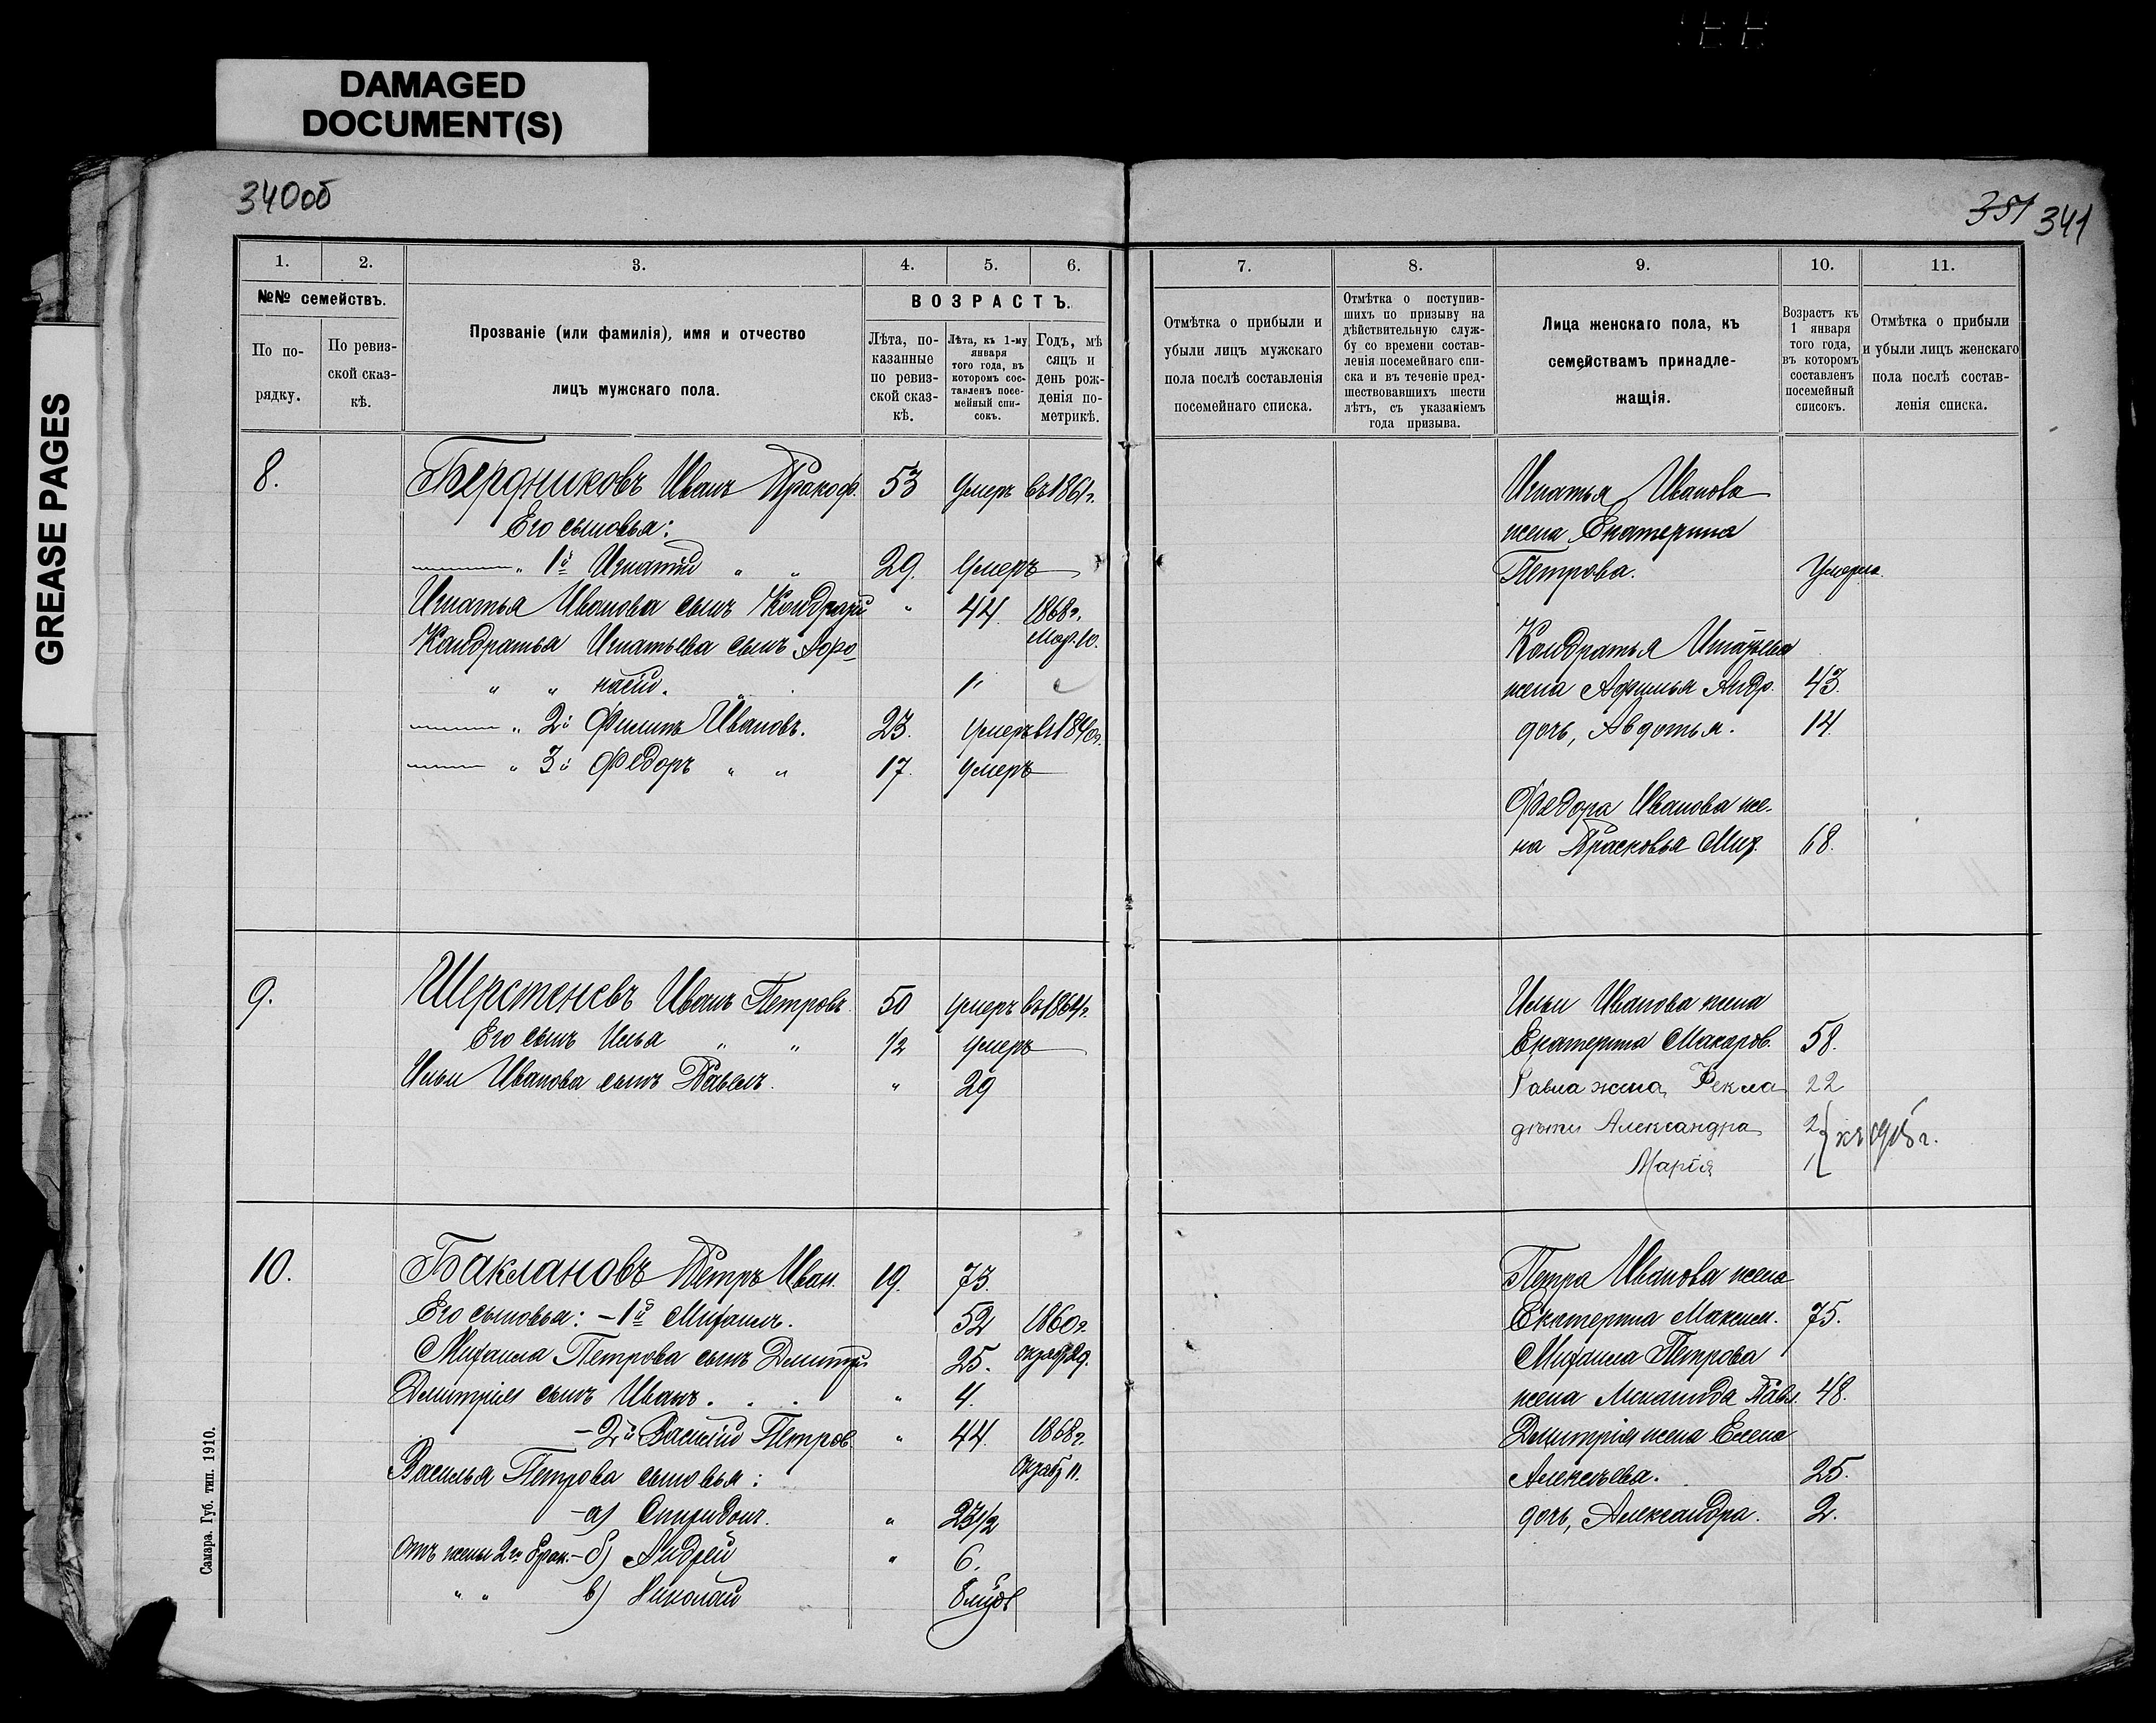 DAMAGED
DOCUMENT(S)
GREASE PAGES
340об
351 341
1. 2. 3. 4. 5. 6. 7. 8. 9. 10. 11.
№№ семействъ.
По по-
рядку.
По ревиз-
ской сказ-
кѣ.
Прозваніе (или фамилія), имя и отчество
лицъ мужскаго пола.
ВОЗРАСТЪ.
Лѣта, по-
казанные
по ревиз-
ской сказ-
кѣ.
Лѣта, къ 1-му
января
того года, въ
которомъ сос-
тавленъ посе-
мейный спи-
сокъ.
Годъ, мѣ
сяцъ и
день рож-
денія по-
метрикѣ.
Отмѣтка о прибыли и
убыли лицъ мужскаго
пола послѣ составленія
посемейнаго списка.
Отмѣтка о поступив-
шихъ по призыву на
дѣйствительную служ-
бу со времени состав-
ленія посемейнаго спи-
ска и въ теченіе пред-
шествовавшихъ шести
лѣтъ, съ указаніемъ
года призыва.
Лица женскаго пола, къ
семействамъ принадле-
жащія.
Возрастъ къ
1 января
того года,
въ которомъ
составленъ
посемейный
списокъ.
Отмѣтка о прибыли
и убыли лицъ женскаго
пола послѣ состав-
ленія списка.
8. Бердниковъ Иванъ Прокоф. 53 умеръ въ 1861г.
Его сыновья:
" 1й Игнатій " " 29. Умеръ
Игнатья Иванова сынъ Кондратій " 44. 1868г.
Мар. 10.
Кондратья Игнатьева сынъ Афо
" " насій. 1"
" 2й Филипъ Ивановъ. 23. умеръ въ 1840г.
" 3й Федоръ " " 17. умеръ
Игнатья Иванова
жена Екатерина
Петрова. Умерла.
Кондратья Игнатьева
жена Афимья Андр. 43.
дочь, Авдотья. 14.
Федора Иванова же-
на Прасковья Мих. 68.
9. Шерстеневъ Иванъ Петровъ 50 умеръ въ 1864г.
Его сынъ Илья " " 1/2 умеръ
Ильи Иванова сынъ Павелъ. " 29
Ильи Иванова жена
Екатерина Макаров. 58.
Павла жена Фекла 22
дѣти Александра 2
Марія 1 къ 1915 г.
10. Баклановъ Петръ Иван. 19. 73.
Его сыновья: - 1й Михаилъ. 52 1860г.
октяб. 29.
Михаила Петрова сынъ Дмитр. 25.
Дмитрія сынъ Иванъ. " 4.
- 2й Василій Петров. " 44. 1868г.
Октяб 11.
Василья Петрова сыновья:
- а) Спиридонъ. " 23 1/2
отъ жены 2го брак. - б) Андрей " 6.
" " в) Николай 8 мѣсов
Петра Иванова жена
Екатерина Максим. 75.
Михаила Петрова
жена Павл. 48.
Дмитрія жена Елена
Алексѣева. 25.
дочь, Александра. 2.
Самара. Губ. тип. 1910.